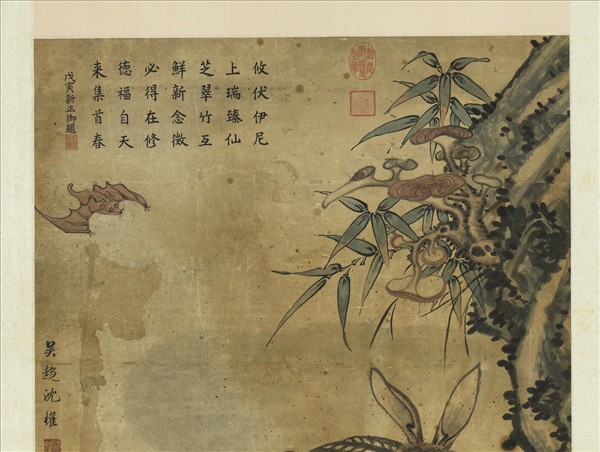 攸伏伊尼
上瑞臻仙
芝翠竹互
鮮新念徵
必得在修
德福自天
来集首春
戊寅新正御題
吴趋沈權